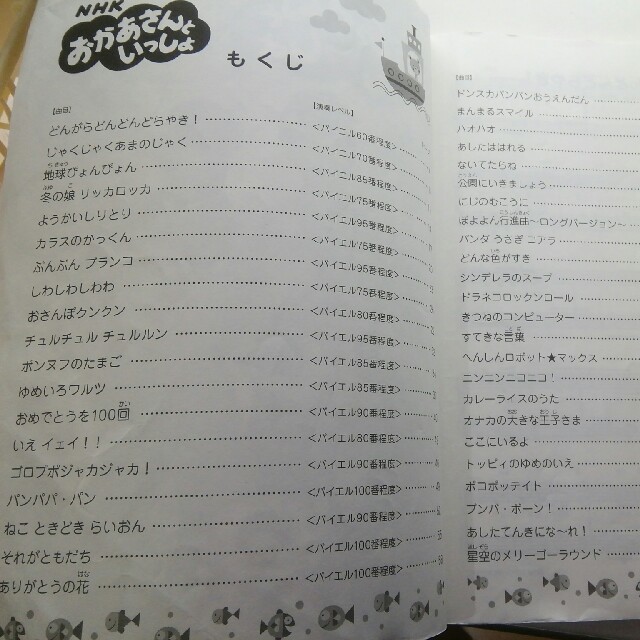 NHK
おかあさんと
いっしょ
もくじ
【曲目】 【演奏レベル】
どんがらどんどんどらやき！ <バイエル60番程度>
じゃくじゃくあまのじゃく <バイエル70番程度>
地球ぴょんぴょん <バイエル85番程度>
冬の娘 リッカロッカ <バイエル75番程度>
ようかいしりとり <バイエル95番程度>
カラスのかっくん <バイエル75番程度>
ぶんぶん ブランコ <バイエル95番程度>
しわしわしわわ <バイエル75番程度>
おさんぽクンクン <バイエル80番程度>
チュルチュル チュルルン <バイエル95番程度>
ポンヌフのたまご <バイエル85番程度>
ゆめいろワルツ <バイエル85番程度>
おめでとうを100回 <バイエル90番程度>
いえ イェイ！！ <バイエル80番程度>
ゴロプポジャカジャカ！ <バイエル90番程度>
パンパパ・パン <バイエル100番程度>
ねこ ときどき らいおん <バイエル90番程度>
それがともだち <バイエル100番程度>
ありがとうの花 <バイエル100番程度>
【曲目】
ドンスカパンパンおうえんだん
まんまるスマイル
ハオハオ
あしたははれる
ないてたらね
公園にいきましょう
にじのむこうに
ぼよよん行進曲～ロングバージョン～
パンダ うさぎ コアラ
どんな色がすき
シンデレラのスープ
ドラネコロックンロール
きつねのコンピューター
すてきな言葉
へんしんロボット★マックス
ニンニンニコニコ！
カレーライスのうた
オナカの大きな王子さま
ここにいるよ
トッピィのゆめのいえ
ポコポッテイト
ブンバ・ボーン！
あしたてんきにな～れ！
星空のメリーゴーラウンド